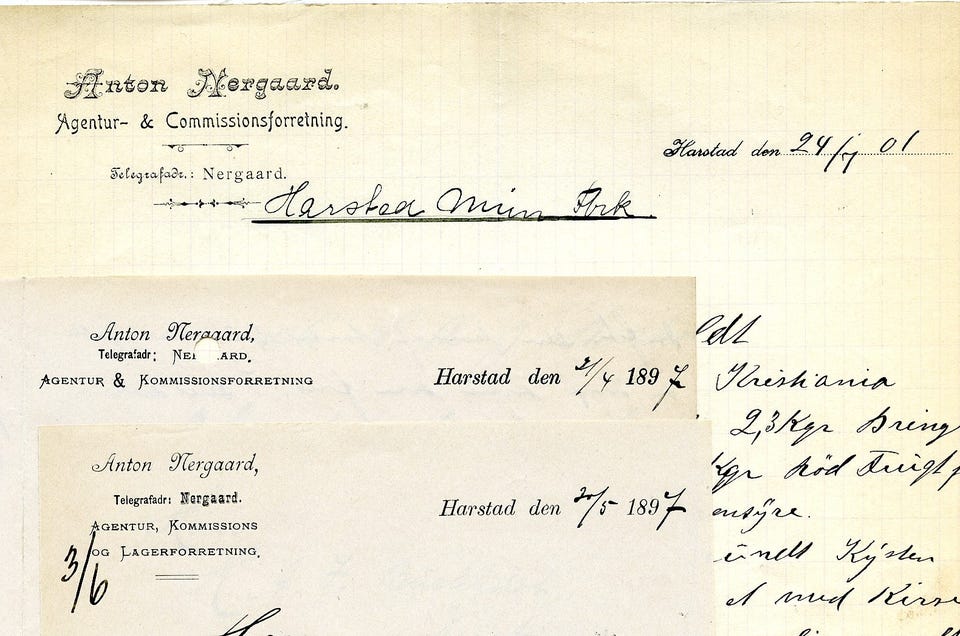 Anton Nergaard.
Agentur- & Commissionsforretning.
Harstad den 24/7 01
Telegrafadr.: Nergaard.
Harstad
Anton Nergaard,
Telegrafadr: NE ARD.
AGENTUR & KOMMISSIONSFORRETNING
Harstad den 21/4 1897
Anton Nergaard,
Telegrafadr: Nergaard.
AGENTUR, KOMMISSIONS
OG LAGERFORRETNING.
Harstad den 20/5 1897
3/6
ldt
Kristiania
2,3 Kgr Bring
Kgr Röd Frugt
ensÿre.
Kÿsten
et med Kirse